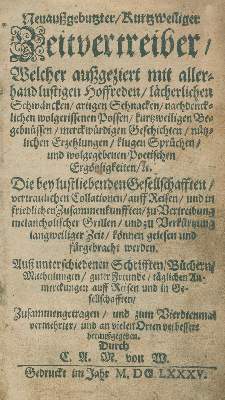 Neuaußgebutzter / Kurtzweiliger
Zeitvertreiber /
Welcher außgeziert mit aller-
hand lustigen Hoffreden / lächerlichen
Schwäncken / artigen Schnacken / nachdenck-
lichen wolgerissenen Possen / kurtzweiligen Be-
gebnüssen / merckwürdigen Geschichten / nütz-
lichen Erzehlungen / klugen Sprüchen /
und wolgegebenen Poetischen
Ergößigkeiten / ꝛc.
Die bey lustliebenden Gesellschafften /
vertraulichen Collationen / auff Reisen / und in
friedlichen Zusammenkunfften / zu Vertreibung
melancholischer Grillen / und zu Verkürtzung
langweiliger Zeit / können gelesen und
fürgebracht werden.
Auß unterschiedenen Schrifften / Büchern /
Mutheilungen / guter Freunde / täglichen An-
merckungen auff Reisen und in Ge-
sellschafften /
Zusammengetragen / und zum Vierdtenmal
vermehrter / und an vielen Orten verbessert
herausgegeben.
Durch
C. A. M. von W.
Gedruckt im Jahr M. DC LXXXV.